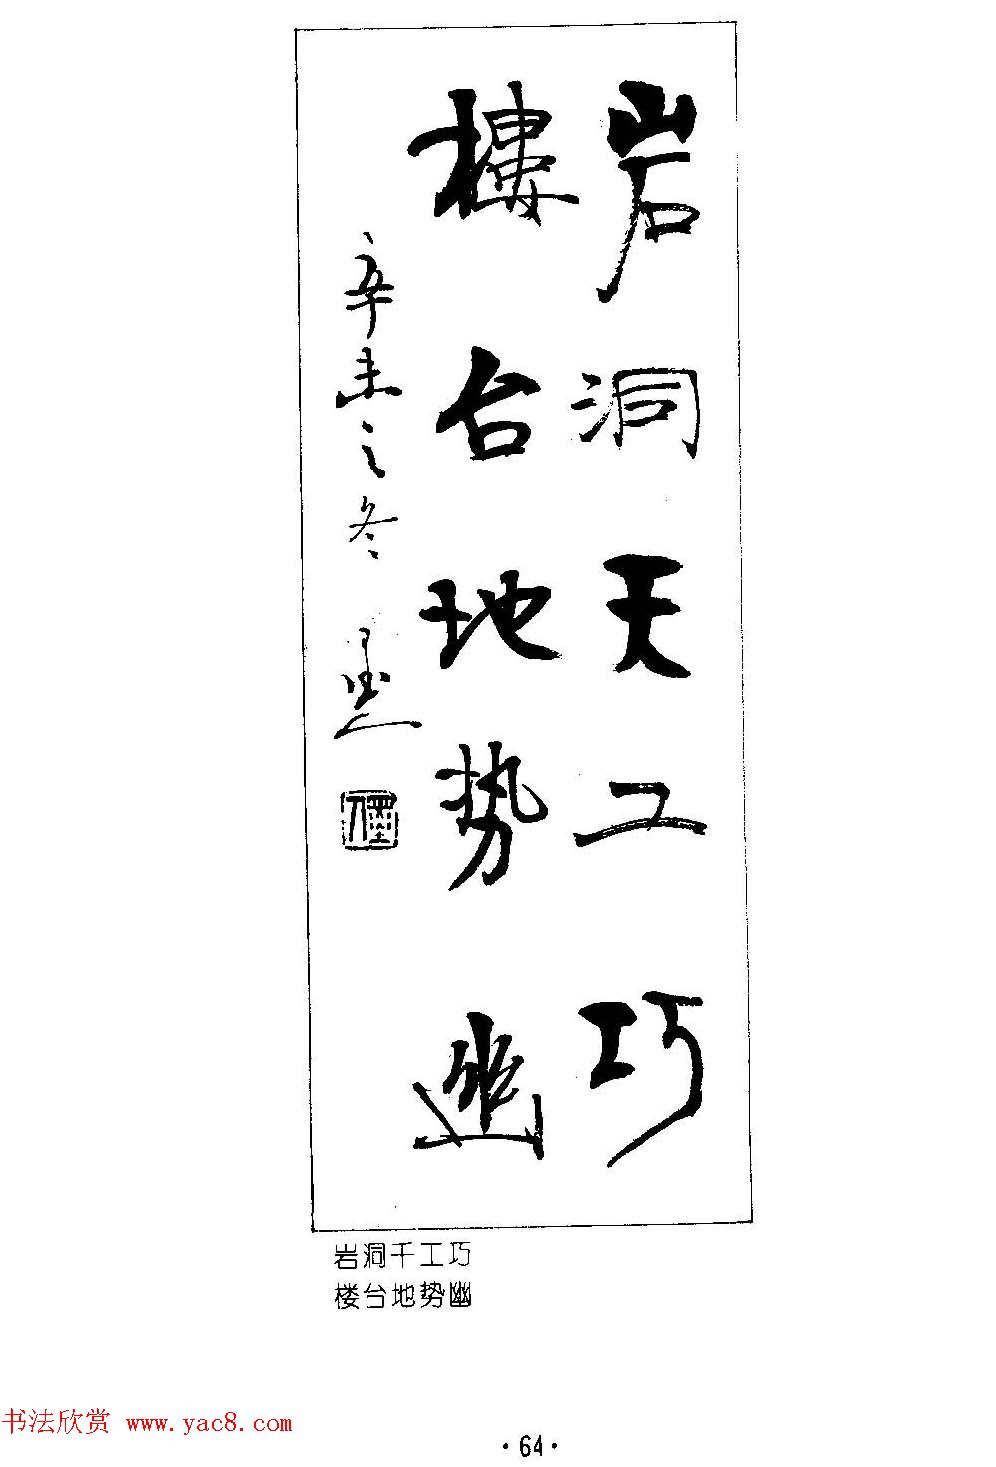 岩洞天工巧
樓台地势幽
辛未之冬 墨
岩洞千工巧
楼台地势幽
书法欣赏 www.yac8.com
·64·